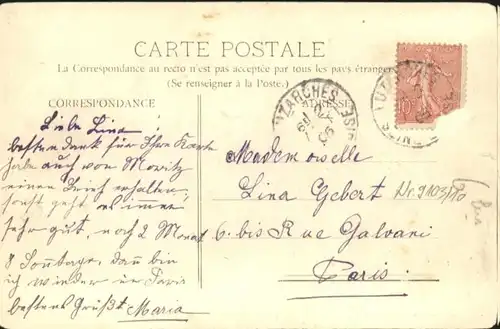 CARTE POSTALE
La Correspondance au recto n'est pas acceptée par tous les pays étrangers
(Se renseigner à la Poste.)
CORRESPONDANCE
ADRESSE
LUZARCHES
Liebe Lina
besten dank für Ihre Karte
habe auch von Moritz
einen Brief erhalten,
sonst geht es mir
sehr gut, noch 2 Monat
8 Sonntage, dann bin
ich wieder in Paris
bestens Grüßt Maria
Mademoiselle
Lina Gebert
6 bis Rue Galvani
Paris.
Nr. 9103/10